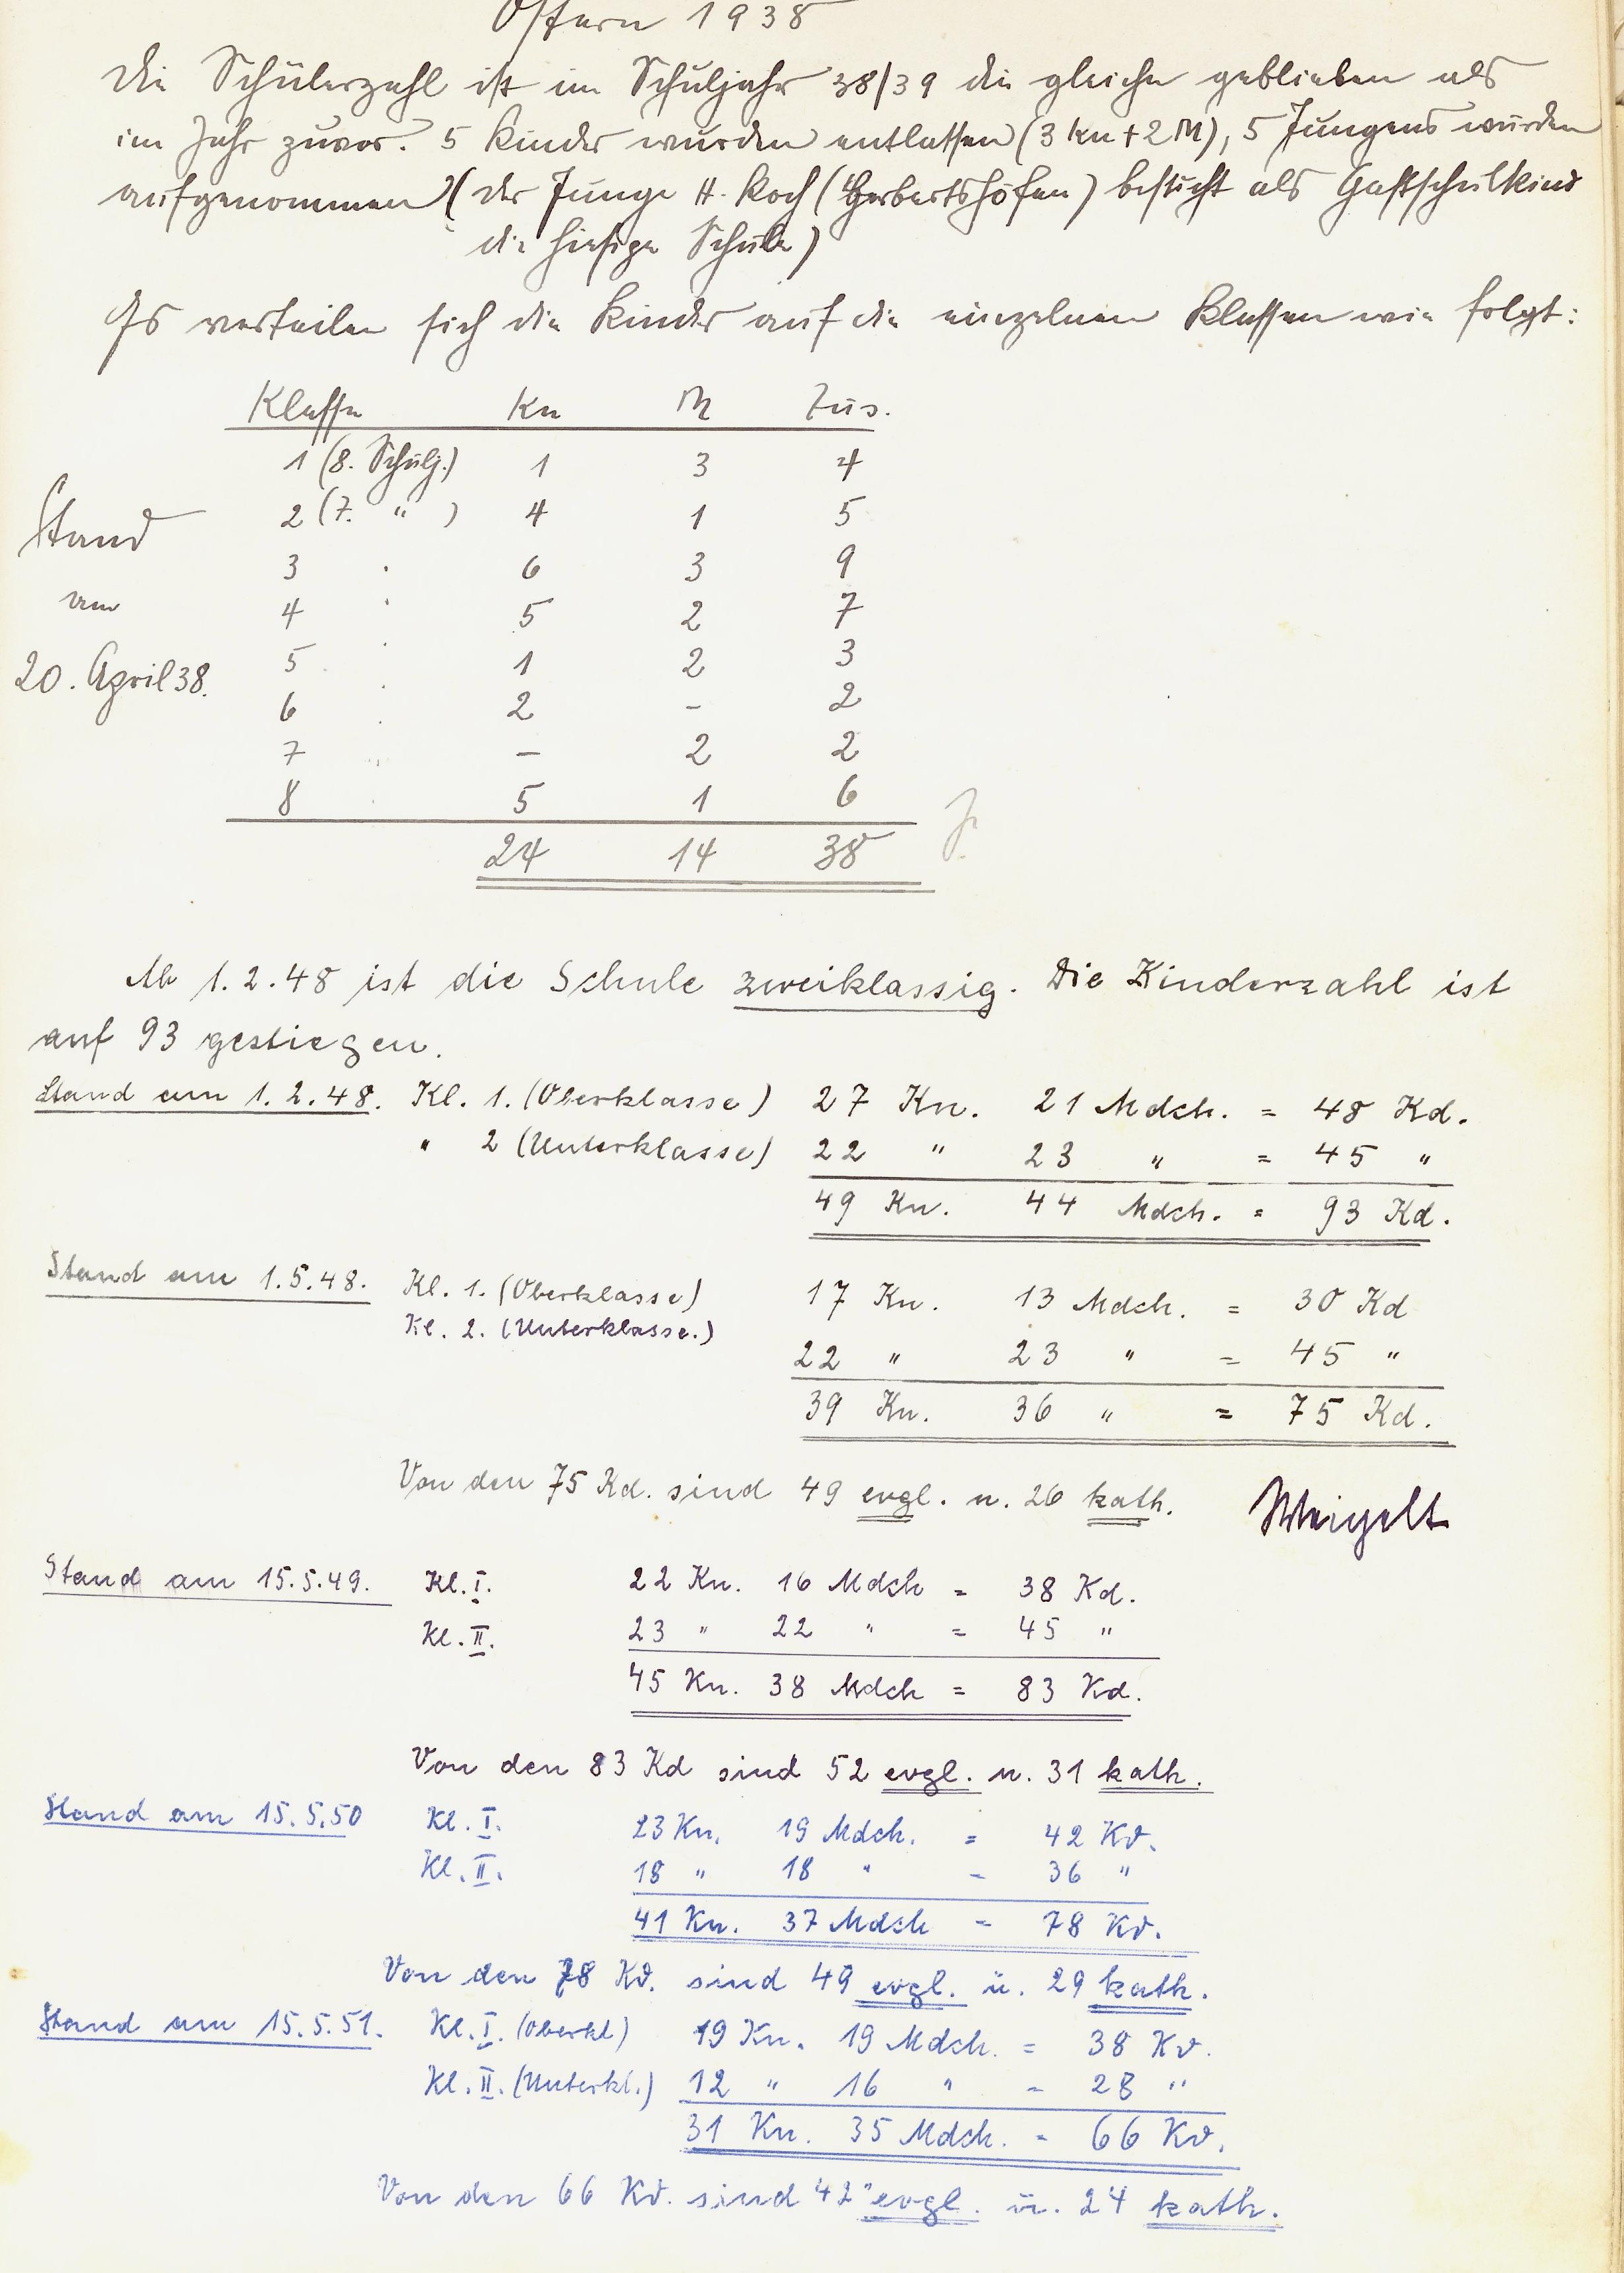 Ostern 1938
Die Schülerzahl ist im Schuljahr 38/39 die gleiche geblieben als
im Jahr zuvor. 5 Kinder wurden entlassen (3 Kn + 2 M), 5 Jungens wurden
aufgenommen (der Junge H. Koch (Herbertshofen) besucht als Gastschulkind
die hiesige Schule)
Es verteilen sich die Kinder auf die einzelnen Klassen wie folgt:
Klasse Kn M Zus.
1 (8. Schulj.) 1 3 4
2 (7. " ) 4 1 5
3 6 3 9
4 5 2 7
5 1 2 3
6 2 - 2
7 - 2 2
8 5 1 6
24 14 38
Stand
vom
20. April 38.
Ab 1.2.48 ist die Schule zweiklassig. Die Kinderzahl ist
auf 93 gestiegen.
Stand am 1.2.48. Kl. 1. (Oberklasse) 27 Kn. 21 Mdch. = 48 Kd.
" 2 (Unterklasse) 22 " 23 " = 45 "
49 Kn. 44 Mdch. = 93 Kd.
Stand am 1.5.48. Kl. 1. (Oberklasse) 17 Kn. 13 Mdch. = 30 Kd
Kl. 2. (Unterklasse.) 22 " 23 " = 45 "
39 Kn. 36 " = 75 Kd.
Von den 75 Kd. sind 49 evgl. u. 26 kath. Weigelt
Stand am 15.5.49. Kl. I. 22 Kn. 16 Mdch = 38 Kd.
Kl. II. 23 " 22 " = 45 "
45 Kn. 38 Mdch = 83 Kd.
Von den 83 Kd sind 52 evgl. u. 31 kath.
Stand am 15.5.50 Kl. I. 23 Kn. 19 Mdch. = 42 Kd.
Kl. II. 18 " 18 " = 36 "
41 Kn. 37 Mdch = 78 Kd.
Von den 78 Kd. sind 49 evgl. u. 29 kath.
Stand am 15.5.51. Kl. I. (Oberkl) 19 Kn. 19 Mdch. = 38 Kd.
Kl. II. (Unterkl.) 12 " 16 " = 28 "
31 Kn. 35 Mdch. = 66 Kd.
Von den 66 Kd. sind 42 evgl. u. 24 kath.